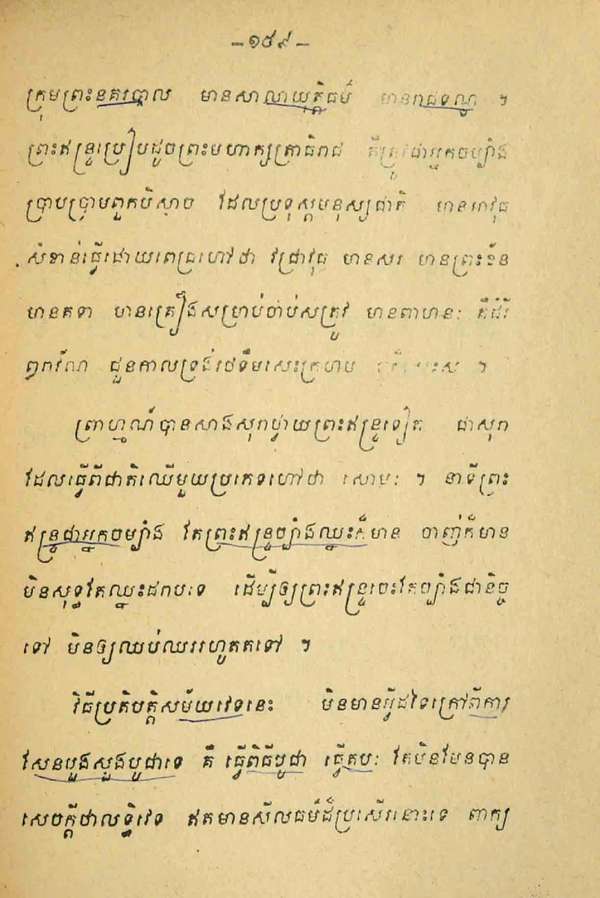 –១៥៩–
ក្រុមព្រះនគរបាល មានសាលាយុត្តិធម៌ មានរាជទណ្ឌ ។
ព្រះឥន្ទ្រប្រៀបដូចព្រះមហាក្សត្រាធិរាជ គឺត្រូវជាអ្នកចម្បាំង
ប្រាបប្រាមពួកបិសាច ដែលប្រទុស្តមនុស្សជាតិ មានអាវុធ
សំខាន់ធ្វើដោយពេជ្រហៅថា វជ្រាវុធ មានសរ មានព្រះខ័ន
មានគទា មានគ្រឿងសម្រាប់ចាប់សត្រូវ មានពាហនៈ គឺដំរី
ជួនកាលទ្រង់រថទឹមសេះក្រហម ។
ព្រាហ្មណ៍បានសាងសុរាថ្វាយព្រះឥន្ទ្រទៀត ជាសុរា
ដែលធ្វើពីជាតិឈើមួយប្រភេទហៅថា សោមៈ ។ នាទីព្រះ
ឥន្ទ្រជាអ្នកចម្បាំង តែព្រះឥន្ទ្រច្បាំងឈ្នះក៏មាន ចាញ់ក៏មាន
មិនសុទ្ធតែឈ្នះដរាបទេ ដើម្បីឲ្យព្រះឥន្ទ្រចេះតែច្បាំងជានិច្ច
ទៅ មិនឲ្យឈប់ឈររហូតតទៅ ។
វិធីប្រតិបត្តិសម័យវេទនេះ មិនមានអ្វីដទៃក្រៅពីការ
សែនបួងសួងបូជាទេ គឺ ធ្វើពិធីបូជា ធ្វើតបៈ តែមិនមែនបាន
សេចក្តីថាលទ្ធិវេទ ឥតមានសីលធម៌ដ៏ប្រសើរនោះទេ ពាក្យ